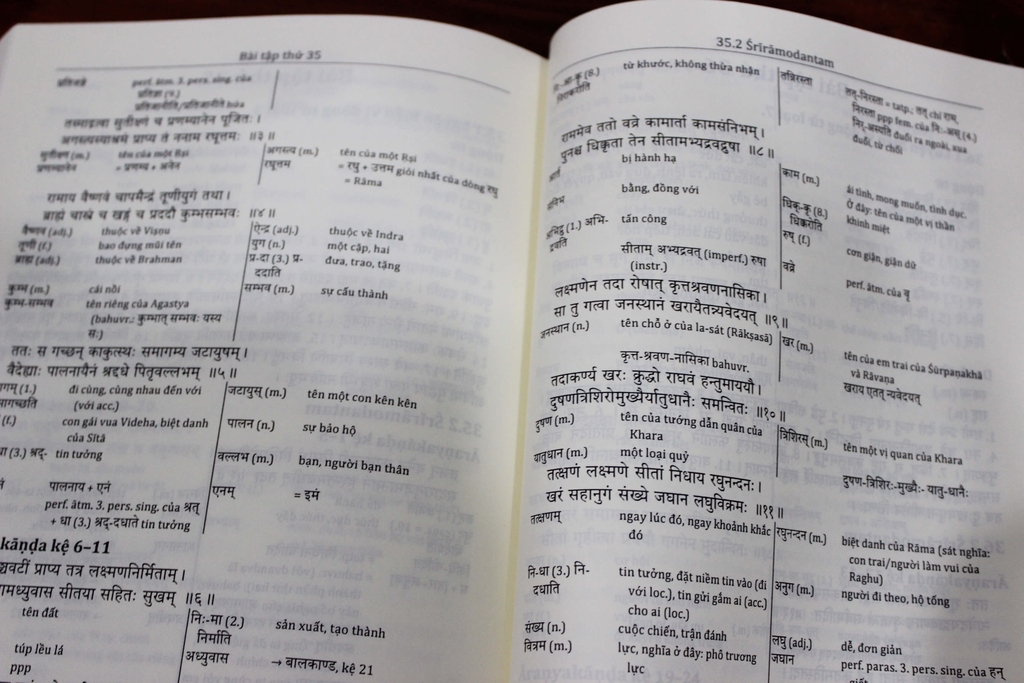 Bài tập thứ 35
perf. ātm. 3. pers. sing. của
प्रतिज्ञा (9.)
प्रतिजानीति/प्रतिजानीते hứa
तस्मादत्वा सुतीक्ष्णं च प्रणम्यानेन पूजितः।
अगस्त्यस्याश्रमं प्राप्य तं ननाम रघूत्तमः ॥३॥
सुतीक्ष्ण (m.) tên của một Ṛṣi
प्रणम्यानेन = प्रणम्य + अनेन
अगस्त्य (m.) tên của một Ṛṣi
रघूत्तम = रघु + उत्तम giỏi nhất của dòng रघु
= Rāma
रामाय वैष्णवं चापमैन्द्रं तूणीयुगं तथा।
ब्राह्मं चास्त्रं च खड्गं च प्रददौ कुम्भसम्भवः ॥४॥
वैष्णव (adj.) thuộc về Viṣṇu
तूणी (f.) bao đựng mũi tên
ब्राह्म (adj.) thuộc về Brahman
कुम्भ (m.) cái nồi
कुम्भ-सम्भव tên riêng của Agastya
(bahuvr.: कुम्भात् सम्भवः यस्य
सः)
ऐन्द्र (adj.) thuộc về Indra
युग (n.) một cặp, hai
प्र-दा (3.) प्र- đưa, trao, tặng
ददाति
सम्भव (m.) sự cấu thành
ततः स गच्छन् काकुत्स्थः समागम्य जटायुषम्।
वैदेह्याः पालनायैनं श्रद्दधे पितृवल्लभम् ॥५॥
गम् (1.) đi cùng, cùng nhau đến với
ागच्छति (với acc.)
(f.) con gái vua Videha, biệt danh
của Sītā
धा (3.) श्रद्- tin tưởng
पालनाय + एनं
perf. ātm. 3. pers. sing. của श्रत्
+ धा (3.) श्रद्-दधाते tin tưởng
जटायुस् (m.) tên một con kên kên
पालन (n.) sự bảo hộ
वल्लभ (m.) bạn, người bạn thân
एनम् = इमं
kāṇḍa kệ 6–11
ञ्चवटीं प्राप्य तत्र लक्ष्मणनिर्मिताम्।
ामध्युवास सीतया सहितः सुखम् ॥६॥
tên đất
túp lều lá
ppp
निः-मा (2.) sản xuất, tạo thành
निर्माति
अध्युवास → बालकाण्ड, kệ 21
35.2 Śrīrāmodantam
निः-आ-कृ (8.) từ khước, không thừa nhận
निराकरोति
तन्निरस्ता तत्-निरस्ता = tatp.; तत् chỉ राम,
निरस्ता ppp fem. của निः-अस् (4.)
निर्-अस्यति đuổi ra ngoài, xua
đuổi, từ chối
राममेव ततो वव्रे कामार्ता कामसंनिभम्।
पुनश्च धिक्कृता तेन सीतामभ्यद्रवद्रुषा ॥८॥
bị hành hạ
bằng, đồng với
अभिद्रु (1.) अभि- tấn công
द्रवति
सीताम् अभ्यद्रवत् (imperf.) रुषा
(instr.)
काम (m.) ái tình, mong muốn, tình dục.
Ở đây: tên của một vị thần
धिक्-कृ (8.) khinh miệt
धिक्करोति
रुष् (f.) cơn giận, giận dữ
वव्रे perf. ātm. của वृ
लक्ष्मणेन तदा रोषात् कृत्तश्रवणनासिका।
सा तु गत्वा जनस्थानं खरायैतन्न्यवेदयत् ॥९॥
जनस्थान (n.) tên chỗ ở của la-sát (Rākṣasā)
कृत्त-श्रवण-नासिका bahuvr.
खर (m.) tên của em trai của Śūrpaṇakhā
và Rāvaṇa
खराय एतत् न्यवेदयत्
तदाकर्ण्य खरः क्रुद्धो राघवं हन्तुमाययौ।
दुषणत्रिशिरोमुख्यैर्यातुधानैः समन्वितः ॥१०॥
दुषण (m.) tên của tướng dẫn quân của
Khara
यातुधान (m.) một loại quỷ
त्रिशिरस् (m.) tên một vị quan của Khara
दुषण-त्रिशिरः-मुख्यैः-यातु-धानैः
तत्क्षणं लक्ष्मणे सीतां निधाय रघुनन्दनः।
खरं सहानुगं संख्ये जघान लघुविक्रमः ॥११॥
तत्क्षणम् ngay lúc đó, ngay khoảnh khắc
đó
नि-धा (3.) नि- tin tưởng, đặt niềm tin vào (đi
दधाति với loc.), tin gửi gắm ai (acc.)
cho ai (loc.)
संख्य (n.) cuộc chiến, trận đánh
विक्रम (m.) lực, nghĩa ở đây: phô trương
lực
रघुनन्दन (m.) biệt danh của Rāma (sát nghĩa:
con trai/người làm vui của
Raghu)
अनुग (m.) người đi theo, hộ tống
लघु (adj.) dễ, đơn giản
जघान perf. paras. 3. pers. sing. của हन्
giết